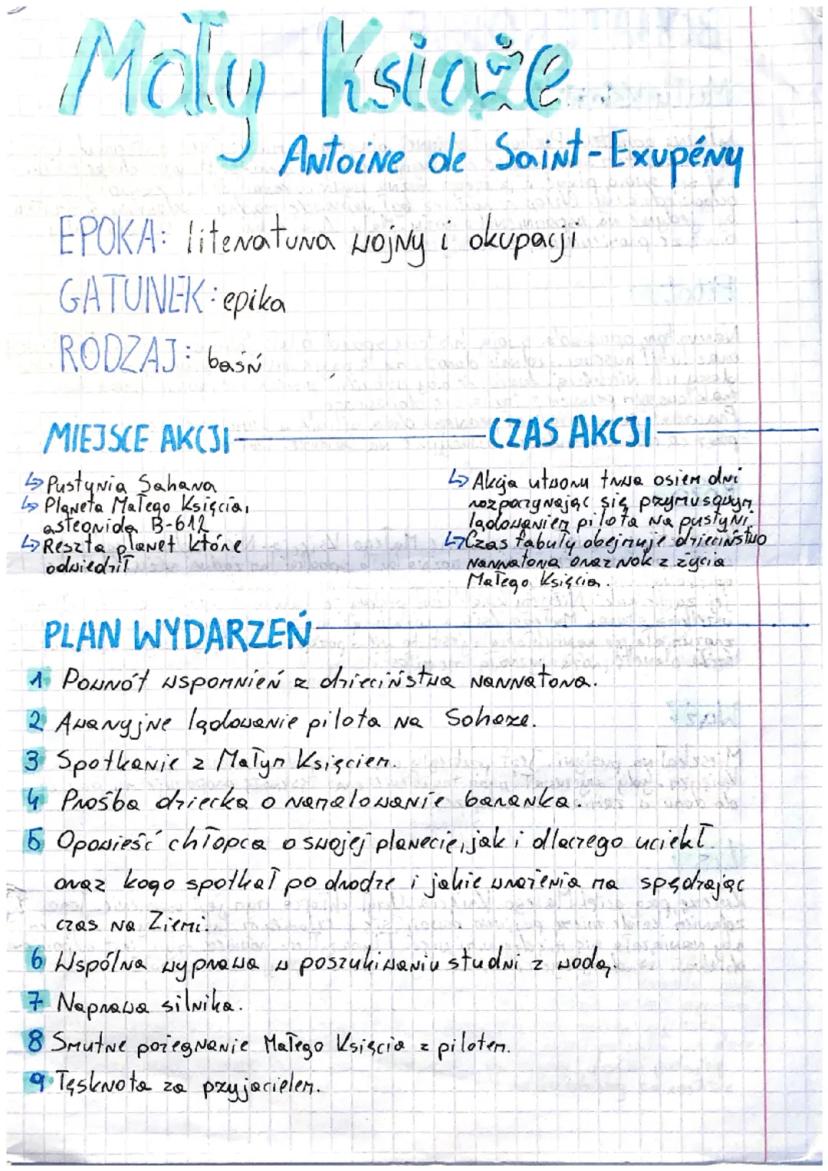 Mały Książe
Antoine de Saint-Exupéry
EPOKA: literatura wojny i okupacji
GATUNEK: epika
RODZAJ: baśń
MIEJSCE AKCJI
↳ Pustynia Sahara
↳ Planeta Małego Księcia,
asteroida B-612
↳ Reszta planet które
odwiedził
CZAS AKCJI
↳ Akcja utworu trwa osiem dni
rozpoczynając się przymusowym
lądowaniem pilota na pustyni,
↳ Czas fabuły obejmuje dzieciństwo
narratora oraz rok z życia
Małego Księcia.
PLAN WYDARZEŃ
1 Powrót wspomnień z dzieciństwa narratora.
2 Awaryjne lądowanie pilota na Saharze.
3 Spotkanie z Małym Księciem.
4 Prośba dziecka o narysowanie baranka.
5 Opowieść chłopca o swojej planecie, jak i dlaczego uciekł
oraz kogo spotkał po drodze i jakie wrażenia ma spędzając
czas na Ziemi.
6 Wspólna wyprawa w poszukiwaniu studni z wodą.
7 Naprawa silnika.
8 Smutne pożegnanie Małego Księcia z pilotem.
9 Tęsknota za przyjacielem.